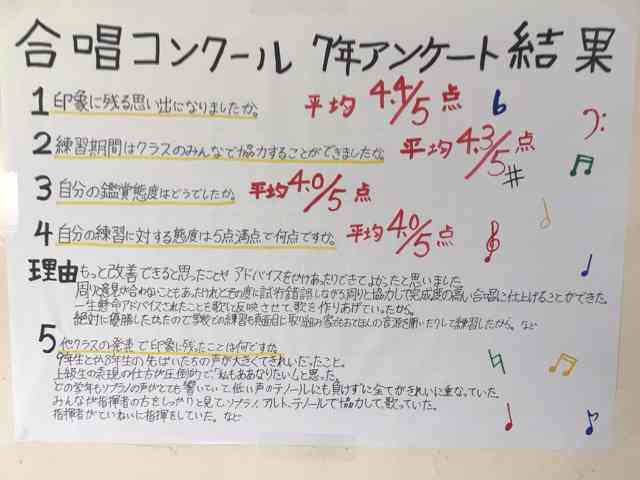 合唱コンクール 7年アンケート結果
1 印象に残る思い出になりましたか。 平均4.4/5点
2 練習期間はクラスのみんなで協力することができましたか。 平均4.3/5点
3 自分の鑑賞態度はどうでしたか。 平均4.0/5点
4 自分の練習に対する態度は5点満点で何点ですか。 平均4.0/5点
理由 もっと改善できると思ったことや、アドバイスをかけあったりできてよかったと思いました。
周りと意見が合わないこともあったけれどその度に試行錯誤しながら周りと協力して完成度の高い合唱に仕上げることができた。
一生懸命アドバイスされたことを歌に反映させて歌を作りあげていたから。
絶対に優勝したかったので学校での練習も真面目に取り組み家でもおてほんの音源を聞いたりして練習したから。など
5 他クラスの発表で印象に残ったことは何ですか
9年生とか8年生の先ぱいたちの声が大きくてきれいだったこと。
上級生の表現の仕方が圧倒的で、私もああなりたいと思った。
どの学年もソプラノの声がとても響いていて、低い声のテノールにも負けずに全てがきれいに重なっていた。
みんなが指揮者の方をしっかりと見て、ソプラノ、アルト、テノールで協力して、歌っていた。
指揮者がていねいに指揮をしていた。など